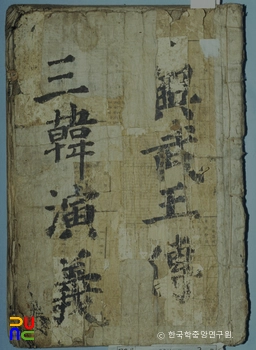 興武王傳
三韓演義
© 한국학중앙연구원